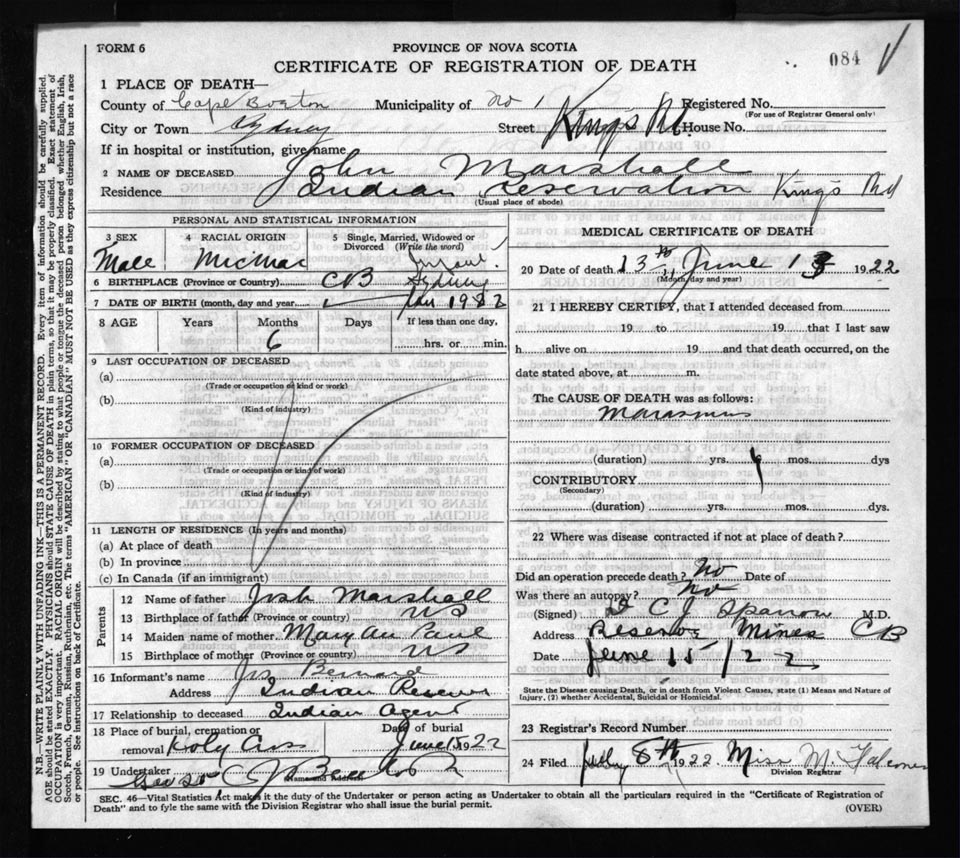 FORM 6
PROVINCE OF NOVA SCOTIA
CERTIFICATE OF REGISTRATION OF DEATH
084
1 PLACE OF DEATH—
County of Cape Breton Municipality of No 1 Registered No.
(For use of Registrar General only)
City or Town Sydney Street King's Rd. House No.
If in hospital or institution, give name
2 NAME OF DECEASED John Marshall
Residence Indian Reservation King's Rd
(Usual place of abode)
PERSONAL AND STATISTICAL INFORMATION
3 SEX 4 RACIAL ORIGIN 5 Single, Married, Widowed or Divorced (Write the word)
Male MicMac
6 BIRTHPLACE (Province or Country) CB Sydney
7 DATE OF BIRTH (month, day and year) Jan 1922
8 AGE Years Months Days If less than one day,
6 hrs. or min.
9 LAST OCCUPATION OF DECEASED
(a)
(Trade or occupation or kind of work)
(b)
(Kind of industry)
10 FORMER OCCUPATION OF DECEASED
(a)
(Trade or occupation or kind of work)
(b)
(Kind of industry)
11 LENGTH OF RESIDENCE (In years and months)
(a) At place of death
(b) In province
(c) In Canada (if an immigrant)
Parents
12 Name of father Josh Marshall
13 Birthplace of father (Province or country) NS
14 Maiden name of mother Mary An Paul
15 Birthplace of mother (Province or country) NS
16 Informant's name
Address Indian Reserve
17 Relationship to deceased Indian Agent
18 Place of burial, cremation or removal Holy Cross Date of burial June 15 1922
19 Undertaker
MEDICAL CERTIFICATE OF DEATH
20 Date of death 13th June 1922
(Month, day and year)
21 I HEREBY CERTIFY, that I attended deceased from
19 to 19 that I last saw
h alive on 19 and that death occurred, on the
date stated above, at m.
The CAUSE OF DEATH was as follows:
Marasmus
(duration) yrs. mos. dys
CONTRIBUTORY
(Secondary)
(duration) yrs. mos. dys.
22 Where was disease contracted if not at place of death?
Did an operation precede death? No Date of
Was there an autopsy? No
(Signed) D C J Sparrow M.D.
Address Reserve Mines CB
Date June 15/22
State the Disease causing Death, or in death from Violent Causes, state (1) Means and Nature of
Injury, (2) whether Accidental, Suicidal or Homicidal.
23 Registrar's Record Number
24 Filed July 8th 1922 Miss
Division Registrar
SEC. 46—Vital Statistics Act makes it the duty of the Undertaker or person acting as Undertaker to obtain all the particulars required in the "Certificate of Registration of
Death" and to fyle the same with the Division Registrar who shall issue the burial permit.
(OVER)
N.B.—WRITE PLAINLY WITH UNFADING INK—THIS IS A PERMANENT RECORD. Every item of information should be carefully supplied.
AGE should be stated EXACTLY. PHYSICIANS should STATE CAUSE OF DEATH in plain terms, so that it may be properly classified. Exact statement of
OCCUPATION is very important. RACIAL ORIGIN will be described by stating to what people or tongue the deceased person belonged whether English, Irish,
Scotch, French, German, Russian, Ruthenian, etc. The terms "AMERICAN" OR "CANADIAN" MUST NOT BE USED as they express citizenship but not a race
or people. See instructions on back of Certificate.